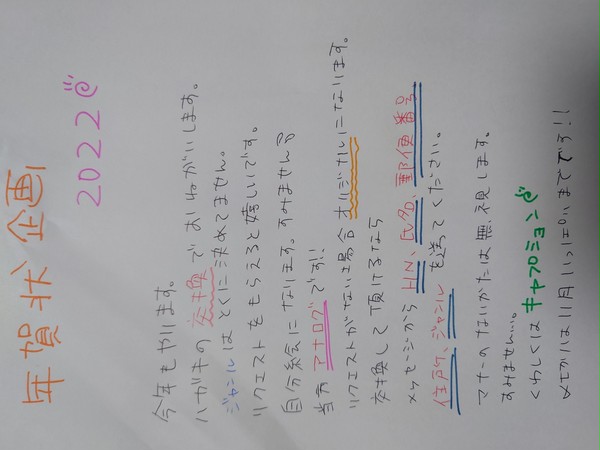 年賀状企画
2022
今年もやります。
ハガキの交換でおねがいします。
ジャンルはとくに決めてません。
リクエストをもらえると嬉しいです。
自分絵になります。すみません
当方アナログです!!
リクエストがない場合オリジナルになります。
交換して頂けるなら
メッセージからH.N、氏名、郵便番号
住所、ジャンルを送ってください。
マナーのないかたは無視します。
すみません。
くわしくはキャプション
〆切は11月いっぱいまでです!!